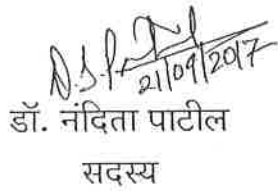 21/09/2017
डॉ. नंदिता पाटील
सदस्य